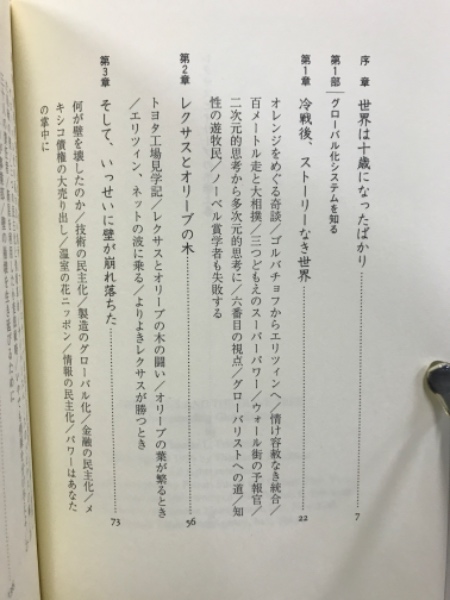 序章 世界は十歳になったばかり 7
第1部 グローバル化システムを知る
第1章 冷戦後、ストーリーなき世界 22
オレンジをめぐる奇談/ゴルバチョフからエリツィンへ/情け容赦なき統合/
百メートル走と大相撲/三つどもえのスーパーパワー/ウォール街の予報官/
二次元的思考から多次元的思考に/六番目の視点/グローバリストへの道/知
性の遊牧民/ノーベル賞学者も失敗する
第2章 レクサスとオリーブの木 56
トヨタ工場見学記/レクサスとオリーブの木の闘い/オリーブの葉が繁るとき
/エリツィン、ネットの波に乗る/よりよきレクサスが勝つとき
第3章 そして、いっせいに壁が崩れ落ちた 73
何が壁を壊したのか/技術の民主化/製造のグローバル化/金融の民主化/メ
キシコ債権の大売り出し/温室の花ニッポン/情報の民主化/パワーはあなた
の掌中に